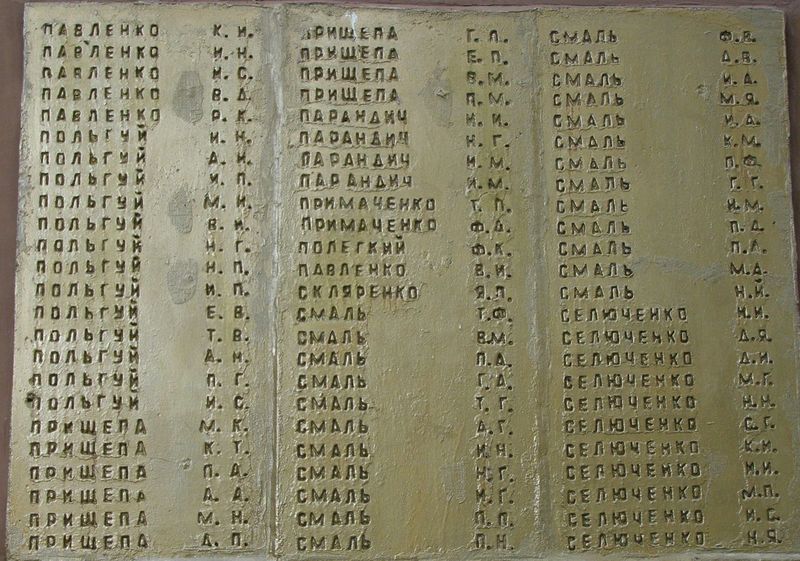 ПАВЛЕНКО К. И.
ПАВЛЕНКО И. Н.
ПАВЛЕНКО И. С.
ПАВЛЕНКО В. Д.
ПАВЛЕНКО Р. К.
ПОЛЬГУЙ И. Н.
ПОЛЬГУЙ А. И.
ПОЛЬГУЙ И. П.
ПОЛЬГУЙ М. И.
ПОЛЬГУЙ В. И.
ПОЛЬГУЙ Н. Г.
ПОЛЬГУЙ Н. П.
ПОЛЬГУЙ И. П.
ПОЛЬГУЙ Е. В.
ПОЛЬГУЙ Т. В.
ПОЛЬГУЙ А. Н.
ПОЛЬГУЙ П. Г.
ПОЛЬГУЙ И. С.
ПРИЩЕПА М. К.
ПРИЩЕПА К. Т.
ПРИЩЕПА П. А.
ПРИЩЕПА А. А.
ПРИЩЕПА М. Н.
ПРИЩЕПА Д. П.
ПРИЩЕПА Г. П.
ПРИЩЕПА Е. П.
ПРИЩЕПА В. М.
ПРИЩЕПА П. М.
ПАРАНДИЧ И. И.
ПАРАНДИЧ Н. Г.
ПАРАНДИЧ И. М.
ПАРАНДИЧ И. М.
ПРИМАЧЕНКО Т. П.
ПРИМАЧЕНКО Ф. Д.
ПОЛЕГКИЙ Ф. К.
ПАВЛЕНКО В. И.
СКЛЯРЕНКО Я. П.
СМАЛЬ Т. Ф.
СМАЛЬ В. М.
СМАЛЬ П. Д.
СМАЛЬ Г. Д.
СМАЛЬ Т. Г.
СМАЛЬ А. Г.
СМАЛЬ И. Н.
СМАЛЬ Н. Г.
СМАЛЬ И. Г.
СМАЛЬ П. П.
СМАЛЬ П. Н.
СМАЛЬ Ф. В.
СМАЛЬ Д. В.
СМАЛЬ И. Д.
СМАЛЬ М. Я.
СМАЛЬ И. Д.
СМАЛЬ К. М.
СМАЛЬ П. Ф.
СМАЛЬ Г. Г.
СМАЛЬ И. М.
СМАЛЬ П. Д.
СМАЛЬ П. А.
СМАЛЬ М. А.
СМАЛЬ Н. Й.
СЕЛЮЧЕНКО И. И.
СЕЛЮЧЕНКО Д. Я.
СЕЛЮЧЕНКО Д. И.
СЕЛЮЧЕНКО М. Г.
СЕЛЮЧЕНКО Н. Н.
СЕЛЮЧЕНКО С. Г.
СЕЛЮЧЕНКО К. И.
СЕЛЮЧЕНКО И. И.
СЕЛЮЧЕНКО М. П.
СЕЛЮЧЕНКО И. С.
СЕЛЮЧЕНКО Н. Я.